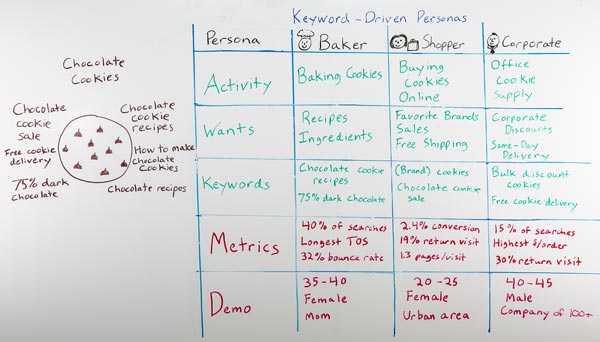 Keyword-Driven Personas
Chocolate
Cookies
Chocolate
cookie
sale
Chocolate
cookie
recipes
Free cookie
delivery
How to make
chocolate
cookies
75% dark
chocolate
Chocolate recipes
Persona
Baker
Shopper
Corporate
Activity
Baking Cookies
Buying
Cookies
Online
Office
Cookie
Supply
Wants
Recipes
Ingredients
Favorite Brands
Sales
Free Shipping
Corporate
Discounts
Same-Day
Delivery
Keywords
Chocolate cookie
recipes
75% dark chocolate
(Brand) cookies
Chocolate cookie
sale
Bulk discount
cookies
Free cookie delivery
Metrics
40% of searches
Longest TOS
32% bounce rate
2.4% conversion
19% return visit
1.3 pages/visit
15% of searches
Highest $/order
30% return visit
Demo
35-40
Female
Mom
20-25
Female
Urban area
40-45
Male
Company of 100+